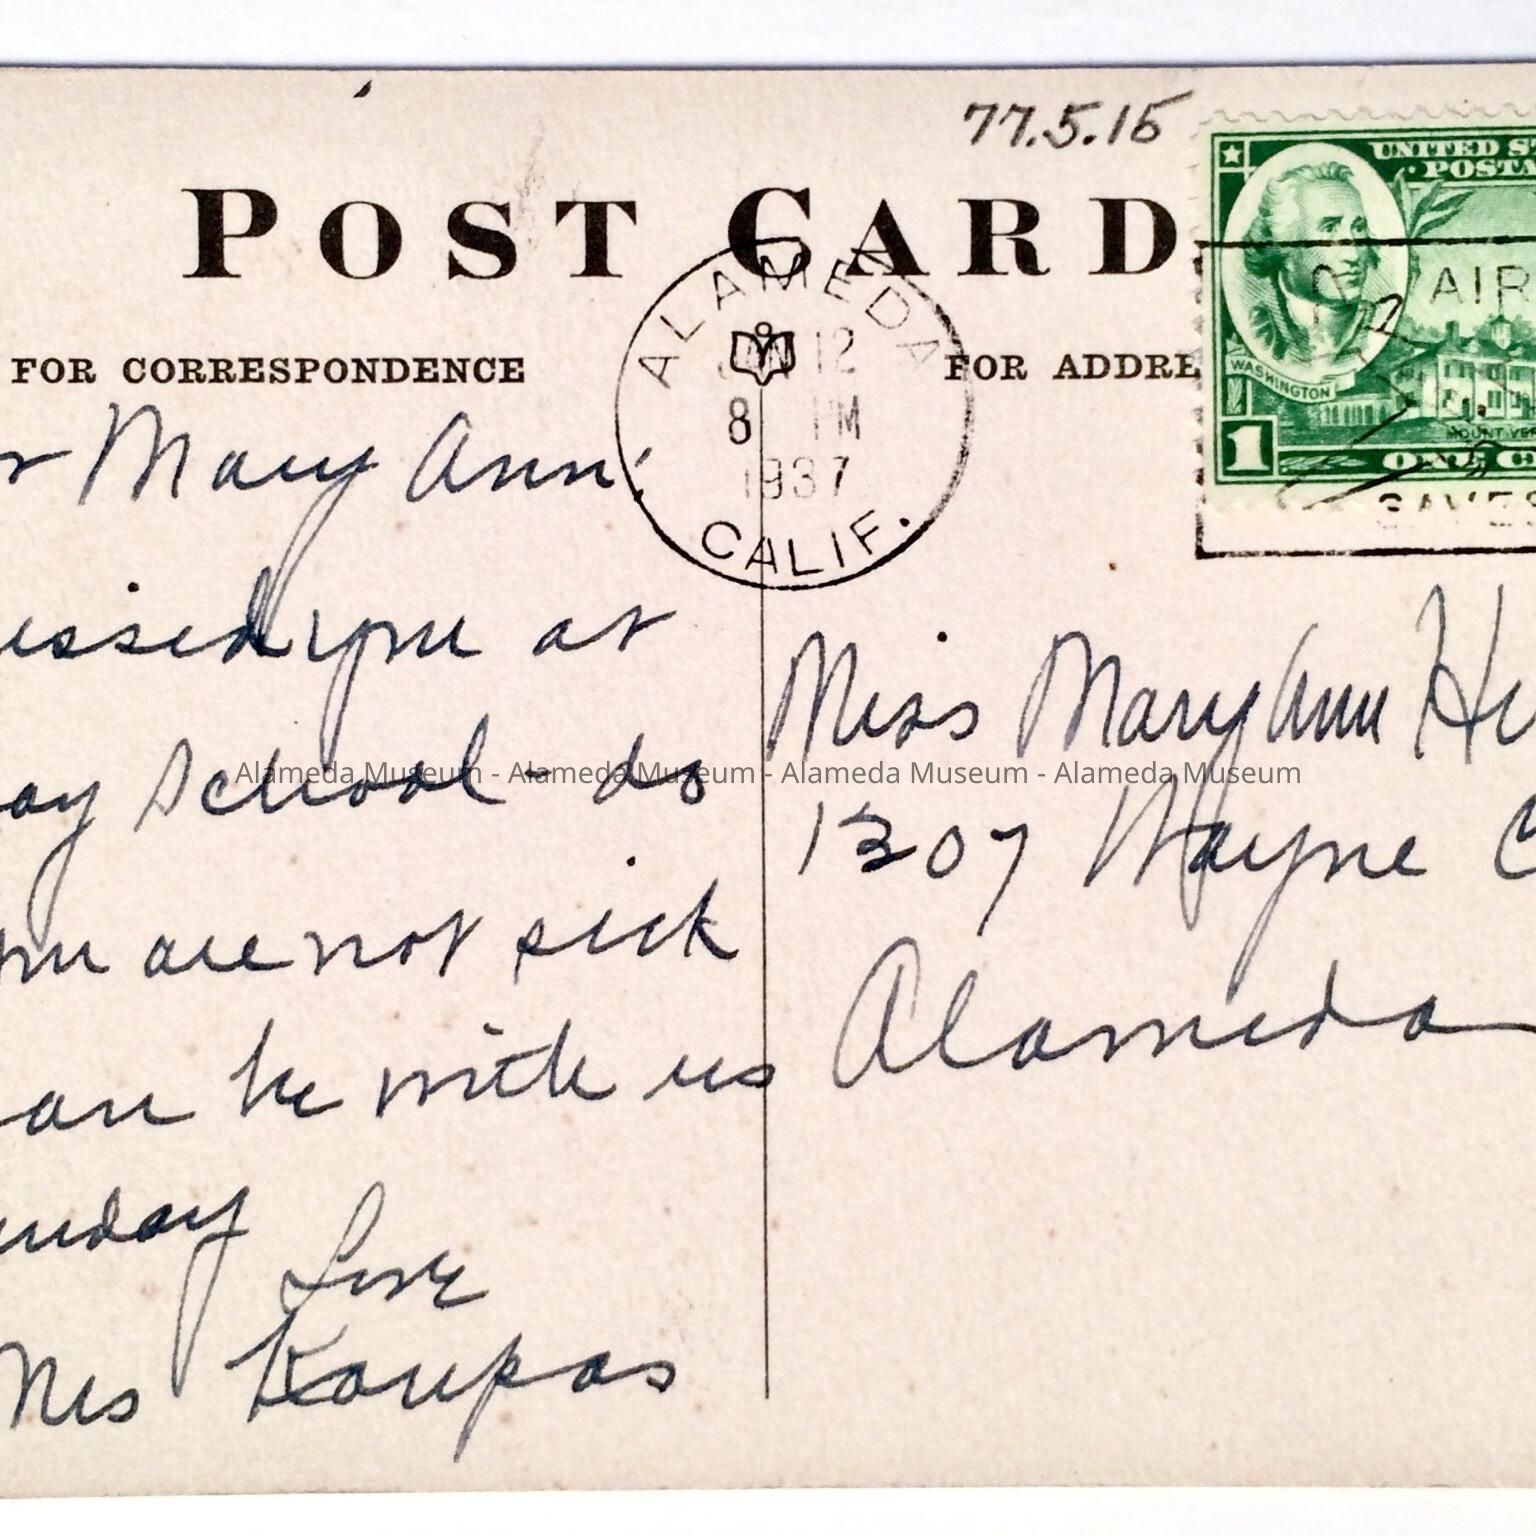 77.5.15
POST CARD
UNITED ST
POSTA
WASHINGTON
MOUNT VER
1
ONE C
AIR
SAVES
ALAMEDA
JAN 12
8 PM
1937
CALIF.
FOR CORRESPONDENCE
FOR ADDRE
r Mary Ann:
issed you at
ay School - do
you are not sick
an be with us
unday
Love
Mrs Koupas
Miss Mary Ann He
1307 Wayne C
Alameda
Alameda Museum - Alameda Museum - Alameda Museum - Alameda Museum